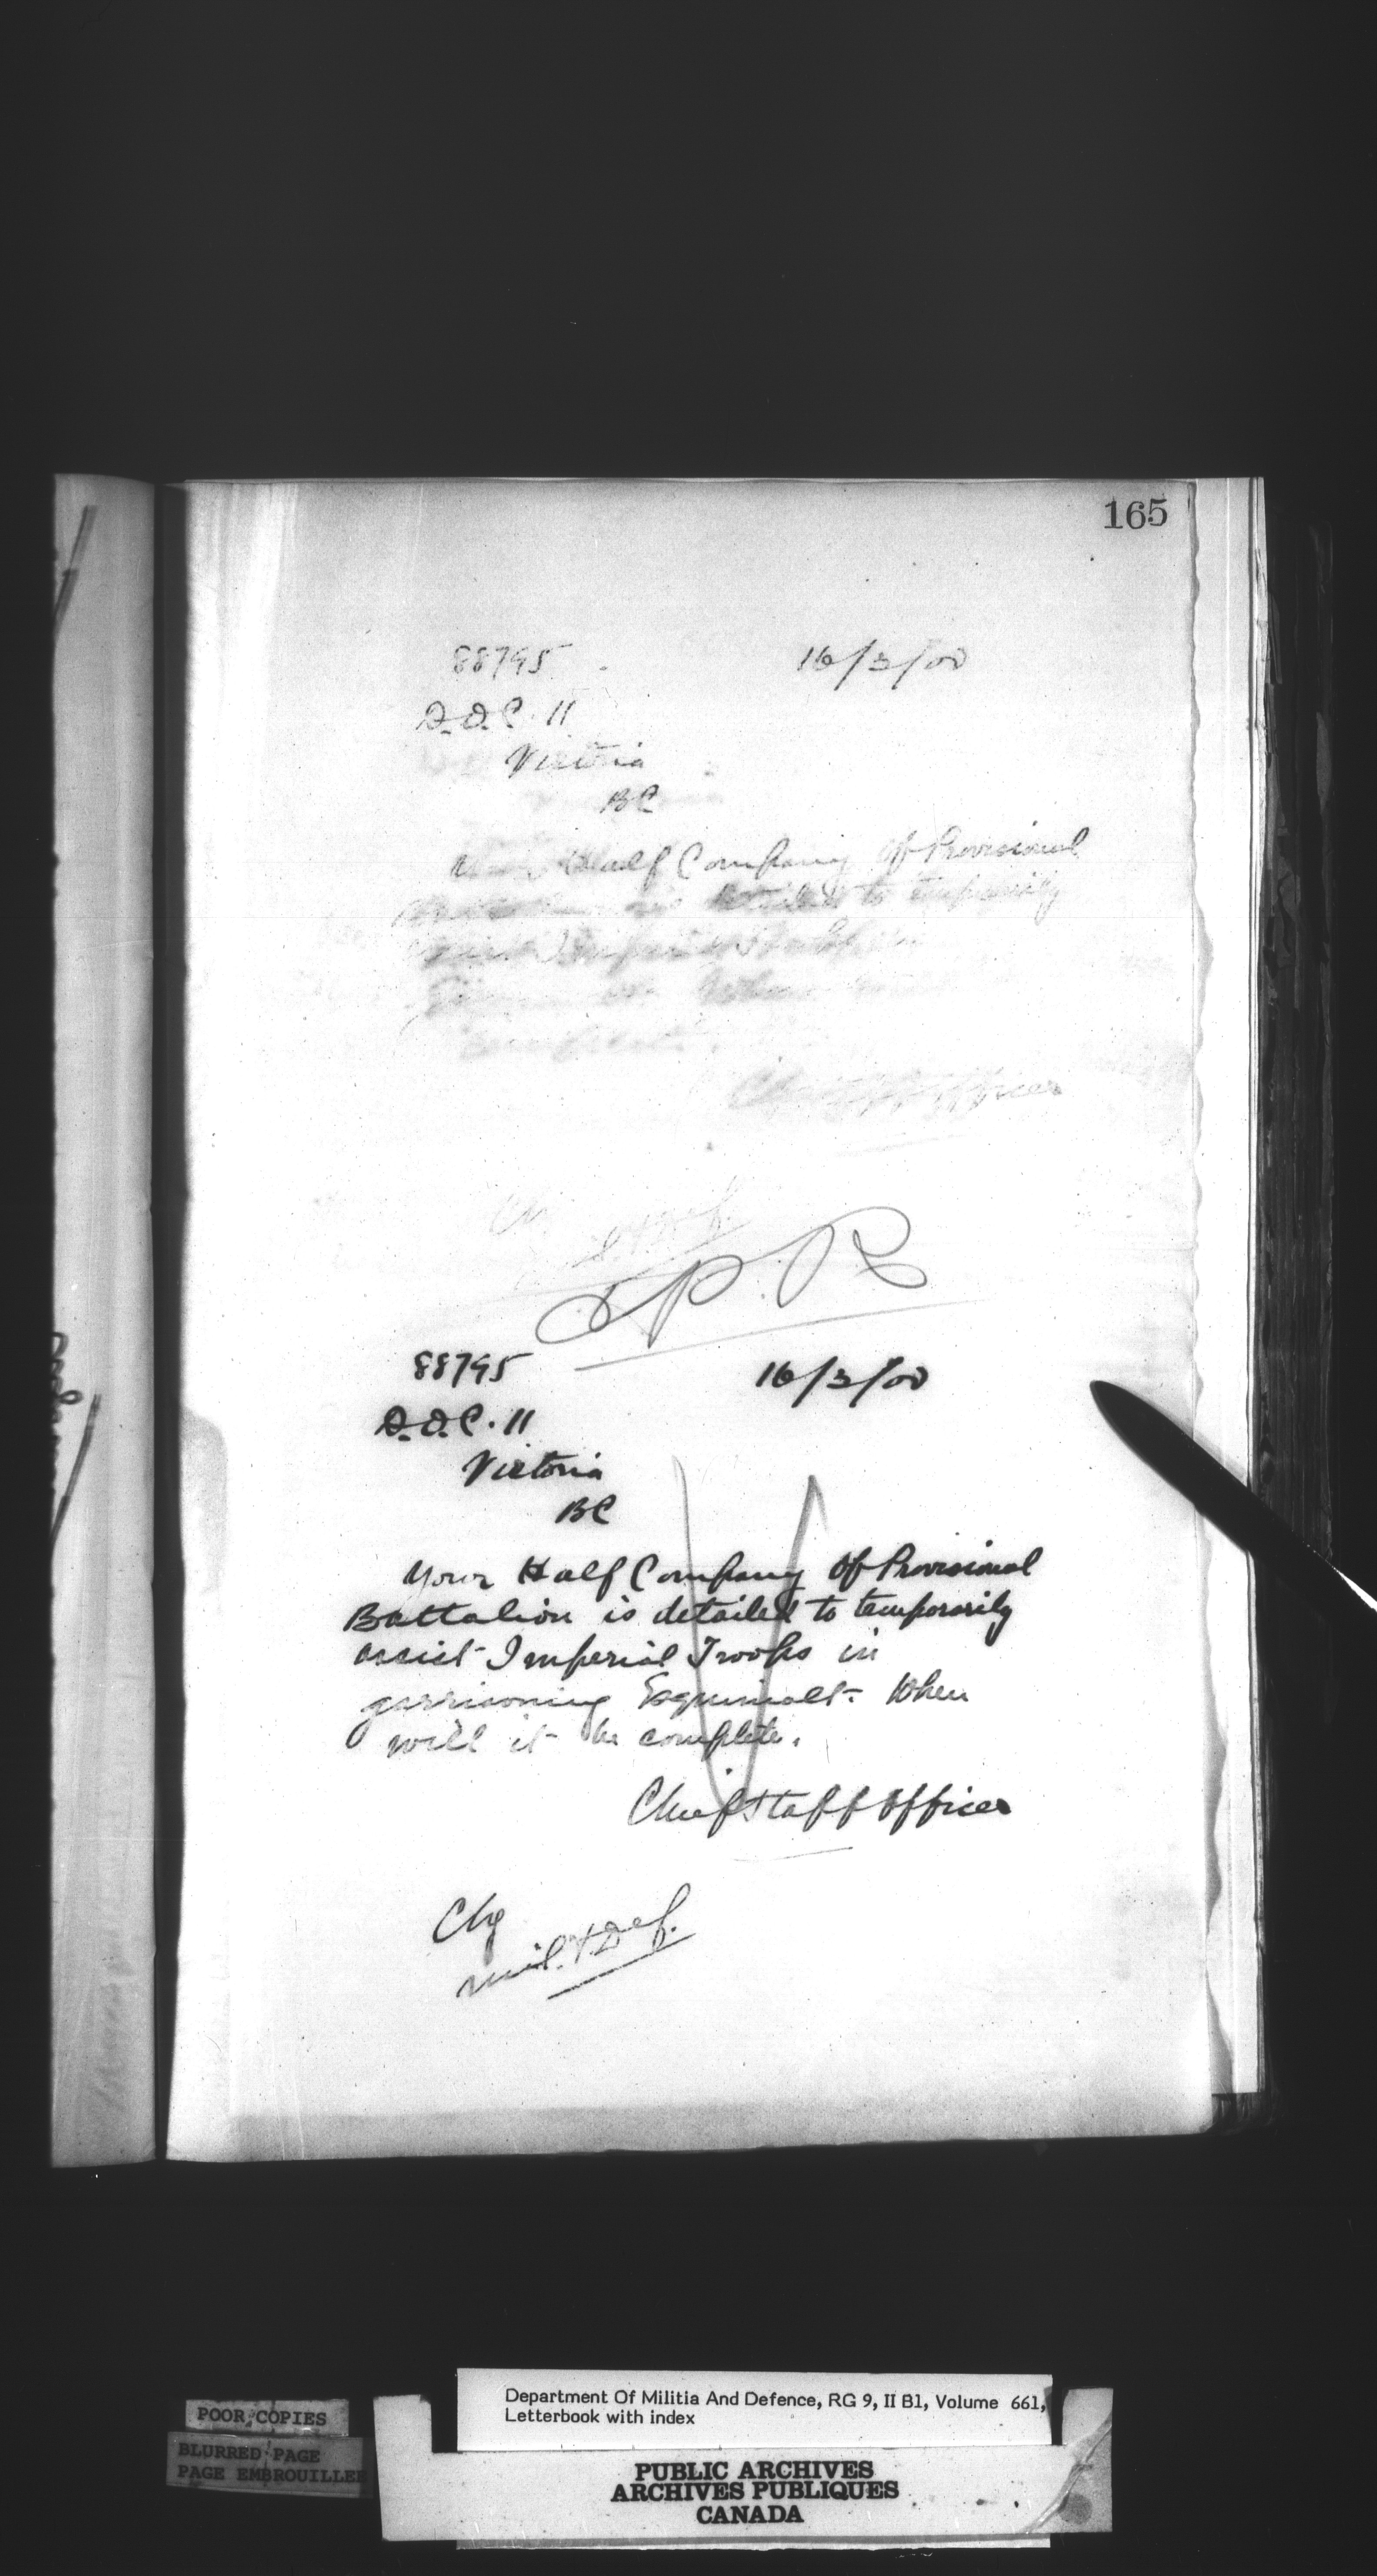 165
88795 16/3/00
D.O.C. 11
Victoria
BC
Half Company of Provisional
detailed to temporarily
Officer
C.P.R
88795 16/3/00
D.O.C. 11
Victoria
BC
Your Half Company of Provisional
Battalion is detailed to temporarily
assist Imperial Troops in
garrisoning Esquimalt. When
will it be complete.
Chief Staff Officer
Chg
Mil. & Def.
Department Of Militia And Defence, RG 9, II B1, Volume 661,
Letterbook with index
POOR COPIES
BLURRED PAGE
PAGE EMBROUILLEE
PUBLIC ARCHIVES
ARCHIVES PUBLIQUES
CANADA